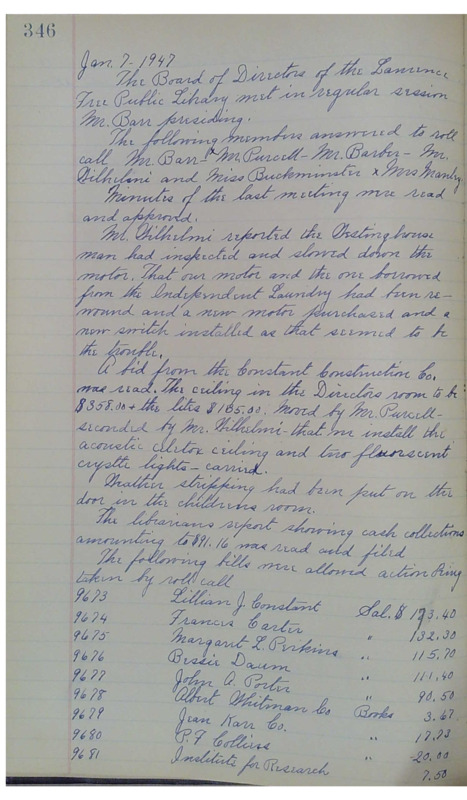 346
Jan. 7 - 1947
The Board of Directors of the Lawrence
Free Public Library met in regular session
Mr. Barr presiding.
The following members answered to roll
call Mr Barr - Mr Purcell - Mr. Barber - Mr.
Wilhelmi and Miss Buckminster x Mrs Manley
Minutes of the last meeting were read
and approved.
Mr. Wilhelmi reported the Westinghouse
man had inspected and slowed down the
motor. That our motor and the one borrowed
from the Independent Laundry had been re-
wound and a new motor purchased and a
new switch installed as that seemed to be
the trouble.
A bid from the Constant Construction Co.
was read. The ceiling in the Directors room to be
$358.00 + the lites $165.00. Moved by Mr. Purcell -
seconded by Mr. Wilhelmi - that we install the
acoustic celotox ceiling and two fluorscent
crystle lights - carried.
Weather stripping had been put on the
door in the childrens room.
The librarians report showing cash collections
amounting to $91.16 was read and filed
The following bills were allowed action being
taken by roll call
9673 Lillian J. Constant Sal. $ 173.40
9674 Francis Carter " 132.30
9675 Margaret L. Perkins " 115.70
9676 Bessie Daum " 111.40
9677 John A. Porter " 90.50
9678 Albert Whitman Co Books 3.67
9679 Jean Karr Co. " 17.73
9680 P.F Colliers " 20.00
9681 Institute for Research 7.50